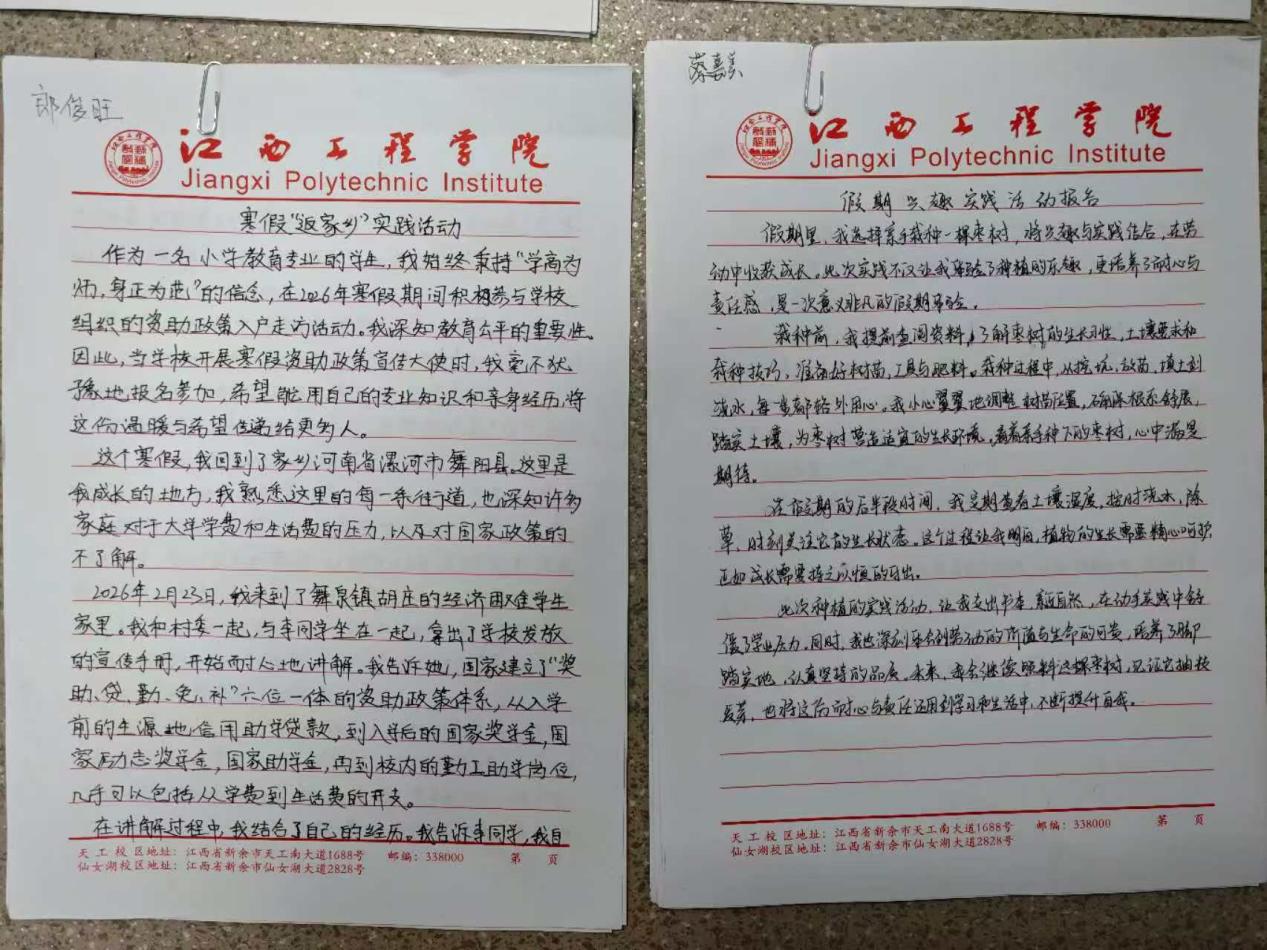 郎俊旺
江西工程学院
Jiangxi Polytechnic Institute
寒假“返家乡”实践活动
作为一名小学教育专业的学生，我始终秉持“学高为
师，身正为范”的信念，在2026年寒假期间积极参与学校
组织的资助政策入户走访活动。我深知教育公平的重要性。
因此，当学校开展寒假资助政策宣传大使时，我毫不犹
豫地报名参加，希望能用自己的专业知识和亲身经历，将
这份温暖与希望传递给更多人。
这个寒假，我回到了家乡河南省漯河市舞阳县。这里是
我成长的地方，我熟悉这里的每一条街道，也深知许多
家庭对于大学学费和生活费的压力，以及对国家政策的
不了解。
2026年2月23日，我来到了舞泉镇胡庄的经济困难学生
家里。我和村委一起，与李同学坐在一起，拿出了学校发放
的宣传手册，开始耐心地讲解。我告诉她，国家建立了“奖
助、贷、勤、免、补”六位一体的资助政策体系，从入学
前的生源地信用助学贷款，到入学后的国家奖学金，国
家励志奖学金，国家助学金，再到校内的勤工助学岗位，
几乎可以包括从学费到生活费的开支。
在讲解过程中，我结合了自己的经历。我告诉李同学，我自
天工校区地址：江西省新余市天工南大道1688号 邮编：338000 第 页
仙女湖校区地址：江西省新余市仙女湖大道2828号
蔡嘉美
江西工程学院
Jiangxi Polytechnic Institute
假期兴趣实践活动报告
假期里，我选择亲手栽种一棵枣树，将兴趣与实践结合，在劳
动中收获成长。此次实践不仅让我体验了种植的乐趣，更培养了耐心与
责任感，是一次意义非凡的假期体验。
栽种前，我提前查阅资料，了解枣树的生长习性，土壤要求和
栽种技巧，准备好树苗，工具与肥料。栽种过程中，从挖坑，放苗，填土到
浇水，每一步都格外用心。我小心翼翼地调整树苗位置，确保根系舒展，
踏实土壤，为枣树营造适宜的生长环境。看着亲手种下的枣树，心中满是
期待。
在假期的后半段时间，我定期查看土壤湿度，按时浇水，除
草，时刻关注它的生长状态。这个过程让我明白，植物的生长需要精心呵护
正如成长需要持之以恒的付出。
此次种植的实践活动，让我走出书本，亲近自然，在动手实践中舒
缓了学业压力。同时，我也深刻体会到劳动的价值与生命的可贵，培养了脚
踏实地，认真坚持的品质。未来，我会继续照料这棵枣树，见证它抽枝
长芽，也将这份耐心与责任运用到学习和生活中，不断提升自我。
天工校区地址：江西省新余市天工南大道1688号 邮编：338000 第 页
仙女湖校区地址：江西省新余市仙女湖大道2828号